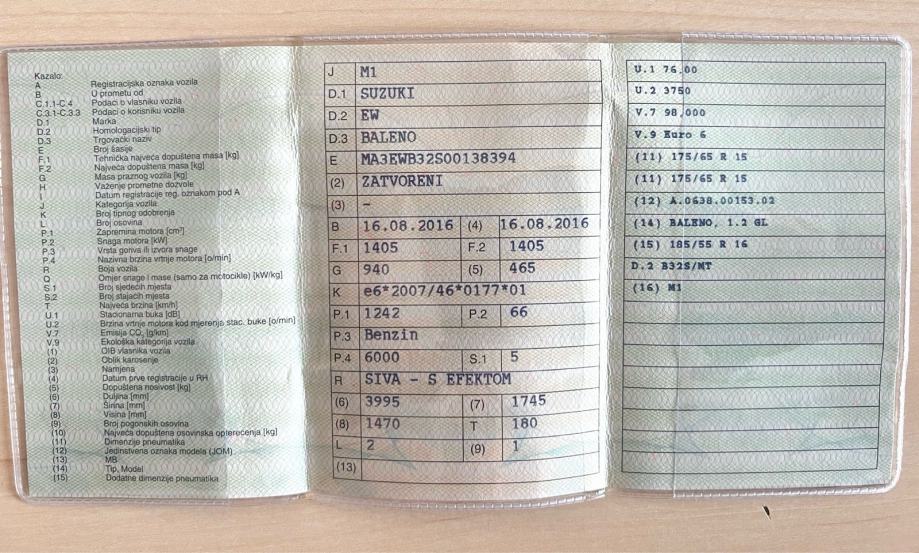 Kazalo:
A Registracijska oznaka vozila
B U prometu od
C.1.1-C.4 Podaci o vlasniku vozila
C.3.1-C.3.3 Podaci o korisniku vozila
D.1 Marka
D.2 Homologacijski tip
D.3 Trgovački naziv
E Broj šasije
F.1 Tehnička najveća dopuštena masa [kg]
F.2 Najveća dopuštena masa [kg]
G Masa praznog vozila [kg]
H Važenje prometne dozvole
I Datum registracije reg. oznakom pod A
J Kategorija vozila
K Broj tipnog odobrenja
L Broj osovina
P.1 Zapremina motora [cm³]
P.2 Snaga motora [kW]
P.3 Vrsta goriva ili izvora snage
P.4 Nazivna brzina vrtnje motora [o/min]
R Boja vozila
Q Omjer snage i mase (samo za motocikle) [kW/kg]
S.1 Broj sjedećih mjesta
S.2 Broj stajaćih mjesta
T Najveća brzina [km/h]
U.1 Stacionarna buka [dB]
U.2 Brzina vrtnje motora kod mjerenja stac. buke [o/min]
V.7 Emisija CO₂ [g/km]
V.9 Ekološka kategorija vozila
(1) OIB vlasnika vozila
(2) Oblik karoserije
(3) Namjena
(4) Datum prve registracije u RH
(5) Dopuštena nosivost [kg]
(6) Duljina [mm]
(7) Širina [mm]
(8) Visina [mm]
(9) Broj pogonskih osovina
(10) Najveća dopuštena osovinska opterećenja [kg]
(11) Dimenzije pneumatika
(12) Jedinstvena oznaka modela (JOM)
(13) MB
(14) Tip, Model
(15) Dodatne dimenzije pneumatika
J M1
D.1 SUZUKI
D.2 EW
D.3 BALENO
E MA3EWB32S00138394
(2) ZATVORENI
(3) –
B 16.08.2016 (4) 16.08.2016
F.1 1405 F.2 1405
G 940 (5) 465
K e6*2007/46*0177*01
P.1 1242 P.2 66
P.3 Benzin
P.4 6000 S.1 5
R SIVA - S EFEKTOM
(6) 3995 (7) 1745
(8) 1470 T 180
L 2 (9) 1
(13)
U.1 76,00
U.2 3750
V.7 98,000
V.9 Euro 6
(11) 175/65 R 15
(11) 175/65 R 15
(12) A.0638.00153.02
(14) BALENO, 1.2 GL
(15) 185/55 R 16
D.2 B32S/MT
(16) M1